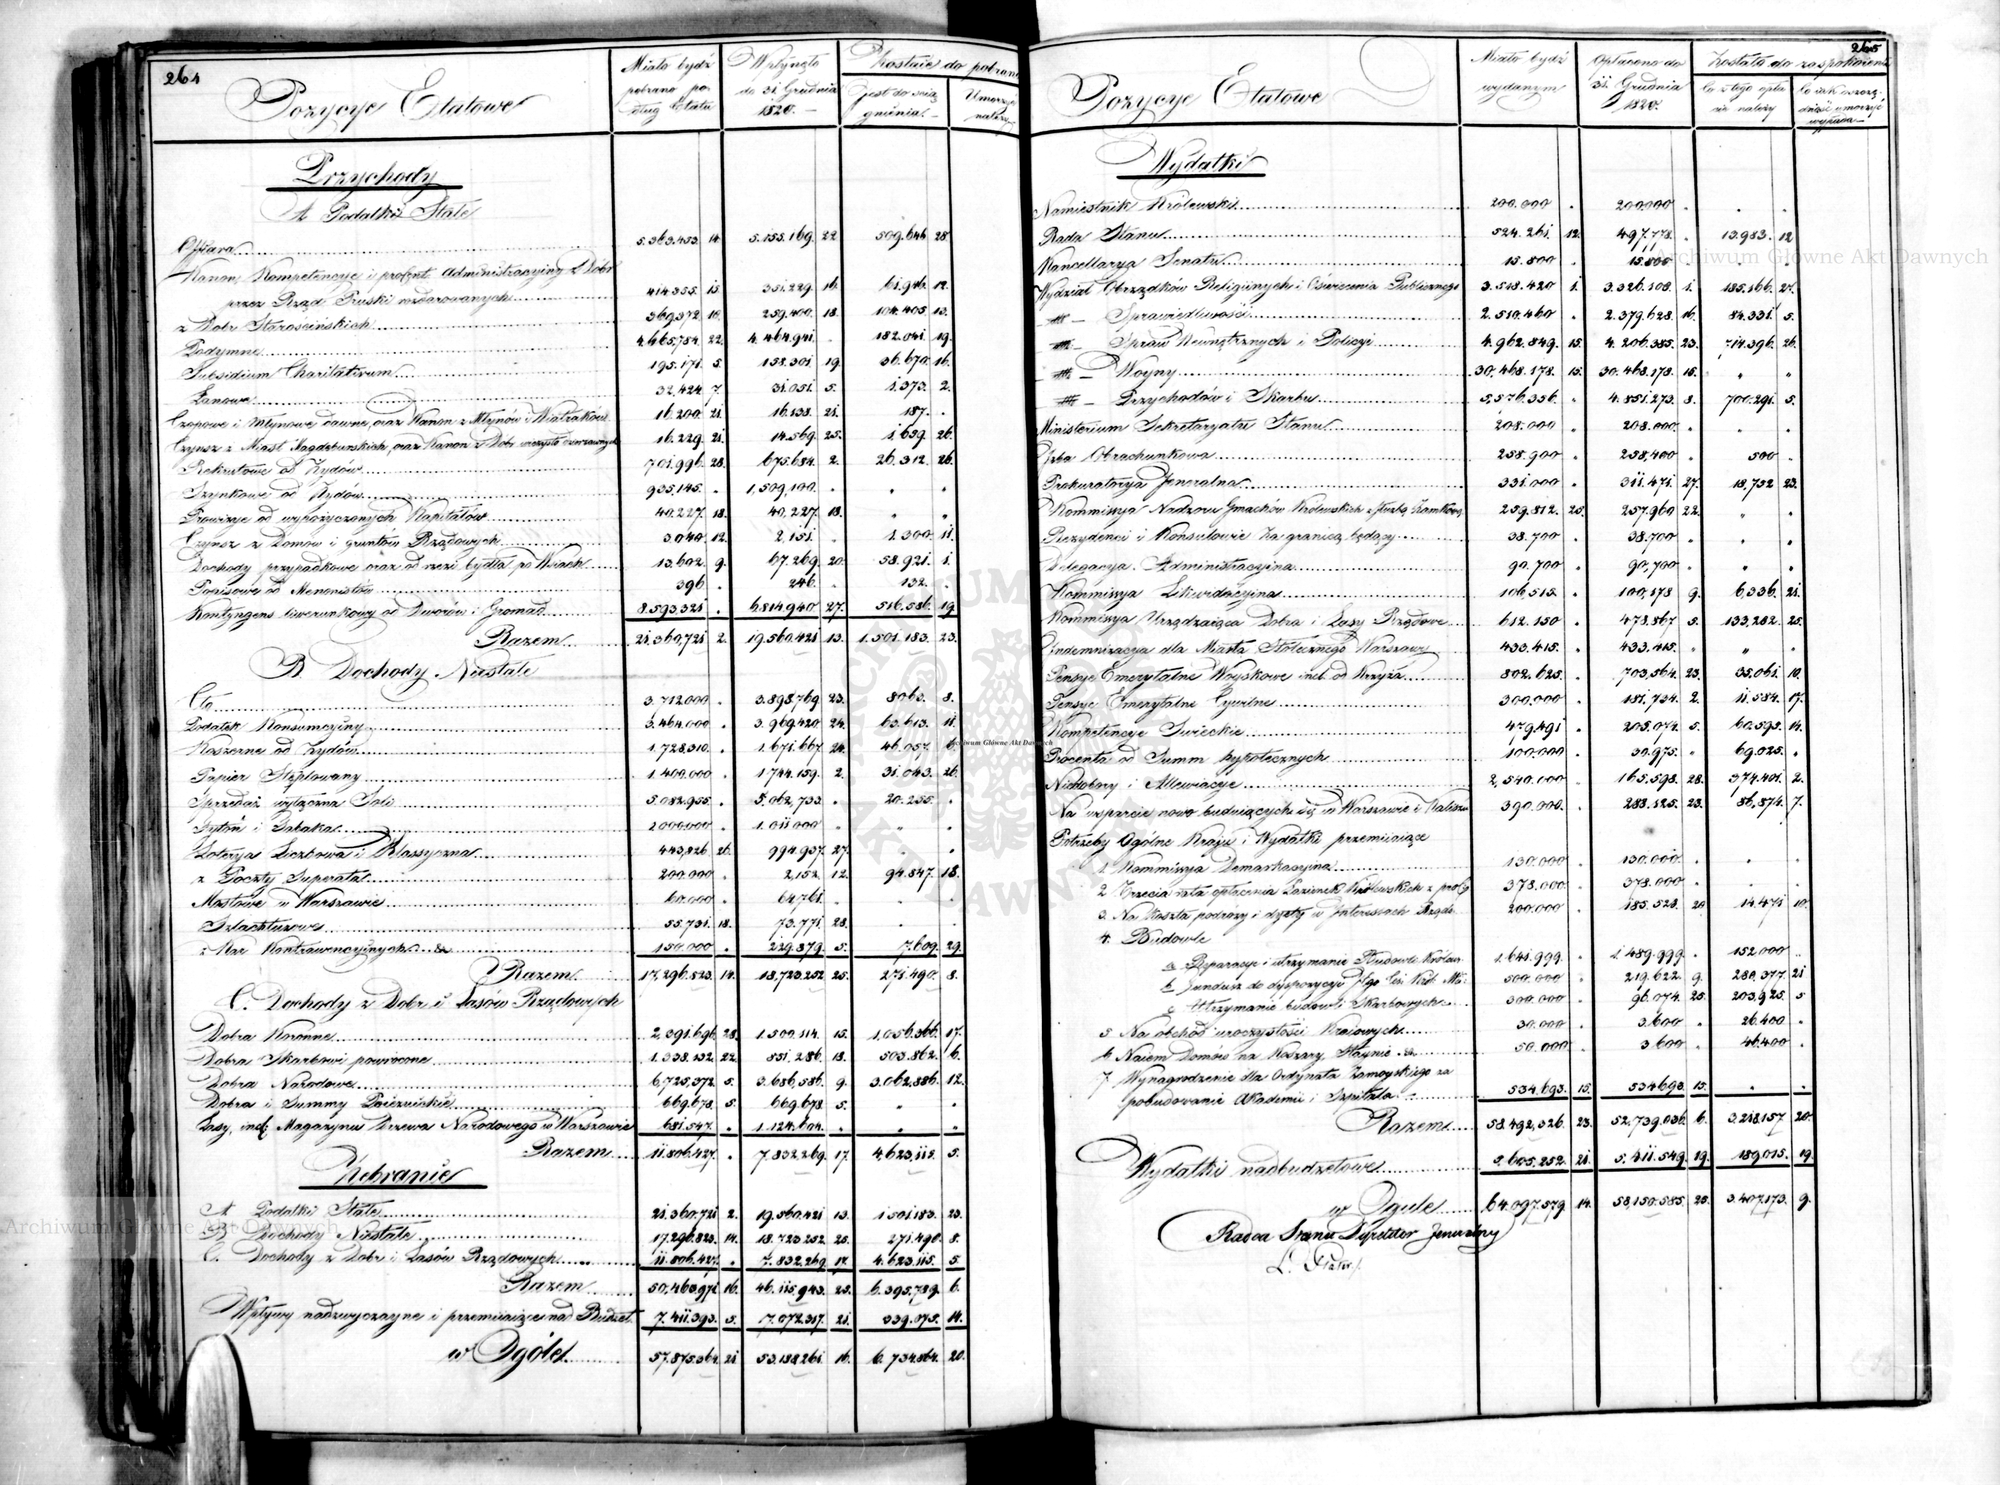 264
Pozycye Etatowe
Miało bydź pobrano podług Etatu
Wpłynęło do 31 Grudnia 1820.
Zostaie do pobrania
Jest do ściągnienia
Umorzyć należy
Przychody
A Podatki Stałe
Ofiara 5.363.453. 14. 5.155.169. 22 509.644 28
Kanon, Kompetencye i profent Administracyiny z Dóbr
przez Rząd Pruski rozdarowanych 414.355. 15. 351.229. 16. 61.946. 12.
z Dóbr Starościńskich 369.372 10. 259.400. 18. 104.405. 13.
Podymne 4.665.754. 22. 4.464.941. . 182.041. 19.
Subsidium Charitativum 195.171. 5. 158.301. 19. 36.670. 16.
Łanowe 32.424 7. 31.051. 5. 1.373. 2.
Czopowe i Młynowe dawne, oraz Kanon z Młynów i Wiatraków 16.200. 21. 16.138. 21. 187. .
Czynsz z Miast Magdeburskich, oraz Kanon z Dóbr wieczysto dzierzawnych 16.229. 21. 14.569. 25. 1.659. 26.
Rekrutowe od Żydów 701.996. 28. 675.684. 2. 26.312. 26.
Szynkowe od Żydów 935.145. . 1,509,100. . . .
Prowizye od wypożyczonych Kapitałów 40.227. 18. 40.227. 18. . .
Czynsz z Domów i gruntów Rządowych 3.040. 12. 2.151. . 1.300. 11.
Dochody przypadkowe oraz od rzezi bydła po Wsiach 13.602. 9. 67.269. 20. 58.921. 1.
Popisowe od Menonistów 396 . 246. . 132. .
Kontyngens liwerunkowy od Dworów i Gromad 8.593.321 . 6.814.940 27. 516.586. 19.
Razem 21.360.721 2. 19.560.421 13. 1.501.183. 23.
B Dochody Niestałe
Cło 3.712.000 . 3.898.769. 23. 8063. 8.
Podatek Konsumcyiny 3.464.000 . 3.969.420 24. 63.613. 11.
Koszerne od Żydów 1.728.310. . 1.671.667. 24. 46.057. 6.
Papier Stęplowany 1.400.000 . 1.744.159. 2. 31.043. 26.
Sprzedaż wyłączna Soli 5.082.955. . 5.062,733. . 20.255. .
Tytoń i Tabaka 2.000.000 . 1.011.000 . . .
Loterya Liczbowa i Klassyczna 443,826 26. 994.937. 27. . .
z Poczty Superata 200.000 . 2,152. 12. 94.847. 18.
Mostowe w Warszawie 60.000 . 64.761. . . .
Szlachtuzowe 55.731. 18. 73.771. 28. . .
z Kar Kontrawencyinych &c 150.000 . 229.879. 5. 7.609. 29.
Razem 17.296.823. 14. 18.723.252 25. 271.490. 8.
C. Dochody z Dóbr i Lasów Rządowych
Dobra Koronne 2,391.696. 28. 1.500.114. 15. 1,056.366. 17.
Dobra Skarbowi powrócone 1.338.232. 22. 851.286. 18. 503.862. 6.
Dobra Narodowe 6.725,372. 5. 3.686,586. 9. 3.062,886. 12.
Dobra i Summy Poiezuickie 669.678. 5. 669.678 5. . .
Lasy, incl. Magazynu Drzewa Narodowego w Warszawie 681.547. . 1.124.604. . . .
Razem 11.806.427. . 7.832.269. 17. 4.623.115. 5.
Zebranie
A Podatki Stałe 21.360.721 2. 19.560.421 13. 1.501.183. 23.
B Dochody Niestałe 17.296.823. 14. 18.723.252. 25. 271.490. 8.
C. Dochody z Dóbr i Lasów Rządowych 11.806.427. . 7.832.269. 17. 4.623.115. 5.
Razem 50.463.971 16. 46.115.943. 25. 6.395.789. 6.
Wpływy nadzwyczayne i przemiiaiące nad Budżet 7.411.393. 5. 7.072.317. 21. 339.075. 14.
w Ogóle 57.875.364. 21 53.188.261. 16. 6.734.864. 20.
265
Pozycye Etatowe
Miało bydź wydanym
Opłacono do 31. Grudnia 1820.
Zostało do zaspokoienia
Co z tego opłacić należy
Co iak oszczędność umorzyć wypada
Wydatki
Namiestnik Królewski 200.000 . 200.000 . . .
Rada Stanu 524.261. 12. 497.778. . 13.983. 12
Kancellarya Senatu 15.800 . 15.800 . . .
Wydział Obrządków Religiinych i Oświecenia Publicznego 3.518.420 1. 3.326.108. 1. 185.166. 27.
— Sprawiedliwości 2.510.460 . 2.379.628. 16. 84.331. 5.
— Spraw Wewnętrznych i Policyi 4.962.849. 15. 4.206.385. 23. 714.396. 26.
— Woyny 30.468.178. 15. 30.468.178. 15. " "
— Przychodów i Skarbu 5,576.356. . 4.851.273. 8. 700.291. 5.
Ministerium Sekretaryatu Stanu 208.000 . 208.000. . . .
Izba Obrachunkowa 258.900 . 258,400 . 500 .
Prokuratorya Jeneralna 331.000 . 311.471. 27. 18,732 23.
Kommissya Nadzoru Gmachów Królewskich z służbą Zamkową 259.812. 25. 257.960 22. " .
Rezydenci i Konsulowie za granicą będący 38.700 . 38.700 . . .
Delegacya Administracyina 90.700 . 90,700 . . .
Kommissya Likwidacyina 106.515. . 100,178 9. 6,336. 21.
Kommissya Urządzaiąca Dobra i Lasy Rządowe 612.150 . 478.867 5. 133,282. 25.
Indemnizacya dla Miasta Stołecznego Warszawy 433.415. . 433.415. . . .
Pensye Emerytalne Woyskowe incl. od Krzyża 802.625. . 703,564. 23. 35.061. 10.
Pensye Emerytalne Cywilne 300.000 . 181.734. 2. 11.584. 17.
Kompetencye Świeckie 479.491 . 205.072. 5. 60.595. 14.
Procenta od Summ hypotecznych 100.000 . 30.975. . 69.025. .
Niedobory i Allewiacye 2,540.000 . 165.598. 28. 374.401. 2.
Na wsparcie nowo budujących się w Warszawie i Kaliszu 390.000. . 283.125. 23. 86,874. 7.
Potrzeby Ogólne Kraju i Wydatki przemiiaiące
1. Kommissya Demarkacyina 130.000 . 130.000. . . .
2 Trzecia rata opłacenia Łazienek Królewskich z przyl. 378.000. . 378.000 . . .
3. Na Koszta podróży i dyety w Interessach Rządu 200.000 . 185.528 20. 14.471 10.
4. Budowle
a Reparacye i utrzymanie Budowli Królew. 1.641.999. . 1.489.999. . 152.000 .
b. Fundusz do dyspozycyi 500.000 . 219.622. 9. 280.377. 21
c Utrzymanie budowli Skarbowych 300.000 . 96.074. 25. 203,925. 5
5. Na obchód uroczystości Kraiowych 30.000 . 3.600 . 26.400 .
6 Naiem Domów na Koszary, Staynie &c. 50.000 . 3.600 . 46.400 .
7. Wynagrodzenie dla Ordynata Zamoyskiego za
pobudowanie Akademii i Szpitala 534.693. 15. 534.693. 15. . .
Razem 58.492,326. 23. 52,739.036. 6. 3,218.157 20.
Wydatki nadbudżetowe 5.605.252. 21. 5.411.549. 19. 189.015. 19.
w Ogule 64.097.579. 14. 58.150.585. 25. 3.407.173. 9.
Radca Stanu Dyrektor Jeneralny
Archiwum Główne Akt Dawnych
Archiwum Główne Akt Dawnych
Archiwum Główne Akt Dawnych